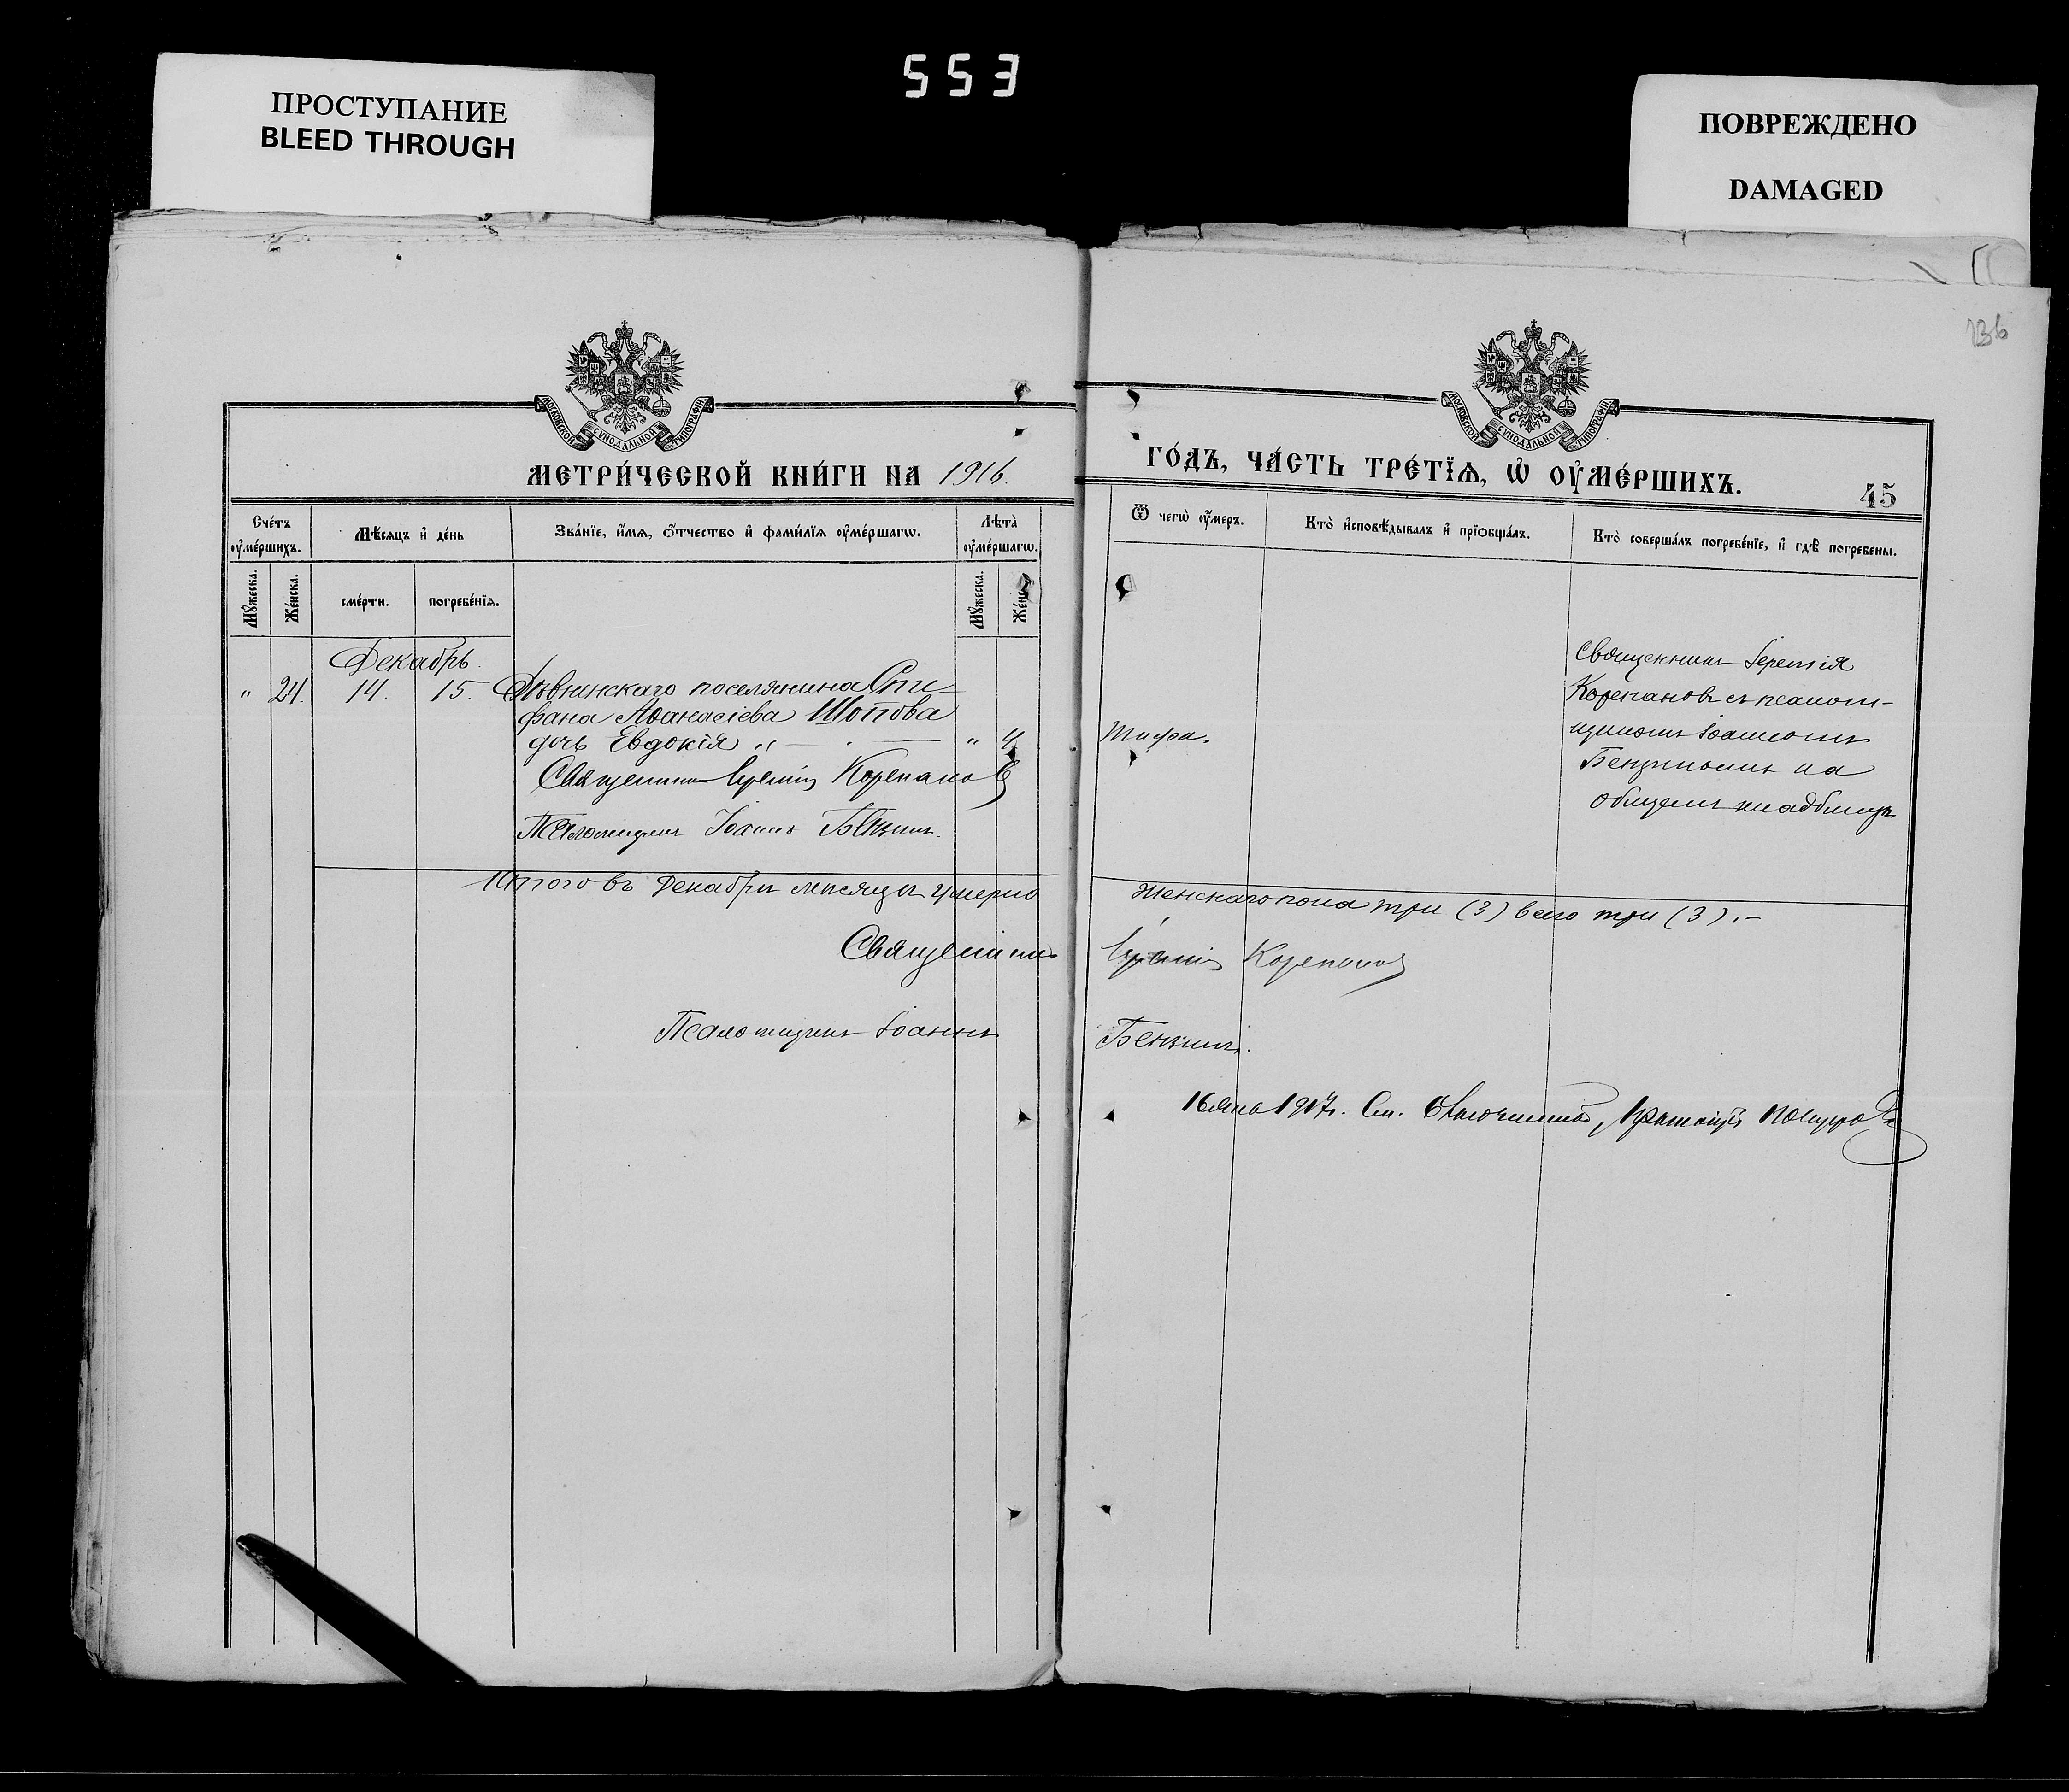 553
ПРОСТУПАНИЕ
BLEED THROUGH
ПОВРЕЖДЕНО
DAMAGED
136
МОСКОВСКОЙ СѴНОДАЛЬНОЙ ТИПОГРАФІИ
МОСКОВСКОЙ СѴНОДАЛЬНОЙ ТИПОГРАФІИ
МЕТРИ́ЧЕСКОЙ КНИ́ГИ НА 1916.
ГО́ДЪ, ЧА́СТЬ ТРЕ́ТЇѦ, Ѡ҆ ОУ҆МЕ́РШИХЪ.
45
Сче́тъ оу҆ме́ршихъ.
Мѣ́сяцъ и҆ де́нь
Зва́нїе, и҆́мя, ѻ҆́тчество и҆ фами́лїя оу҆ме́ршагѡ.
Лѣ́та̀ оу҆ме́ршагѡ.
Ѿ чегѡ̀ оу҆́меръ.
Кто̀ и҆сповѣ́дывалъ и҆ прїѻбща́лъ.
Кто̀ соверша́лъ погребе́нїе, и҆ гдѣ̀ погребены.
Мꙋ́жеска.
Же́нска.
сме́рти.
погребе́нїя.
Мꙋ́жеска.
Же́нс
Декабрь.
" 24. 14. 15. поселянина Спи-
фана Аѳанасіева Шопова
дочь Евдокія " — . — " 4
Священникъ Іеремія Корепановъ
Псаломщикъ Іоаннъ Бензинъ.
Тифа.
Священникъ Іеремія
Корепановъ съ псалом-
щикомъ Іоанномъ
Бензинымъ на
общемъ кладбищѣ
Итого въ Декабрѣ мѣсяцѣ умерло
женскаго пола три (3) всего три (3). –
Священникъ Іеремія Корепановъ
Псаломщикъ Іоаннъ Бензинъ.
16 янв 1917г. См.